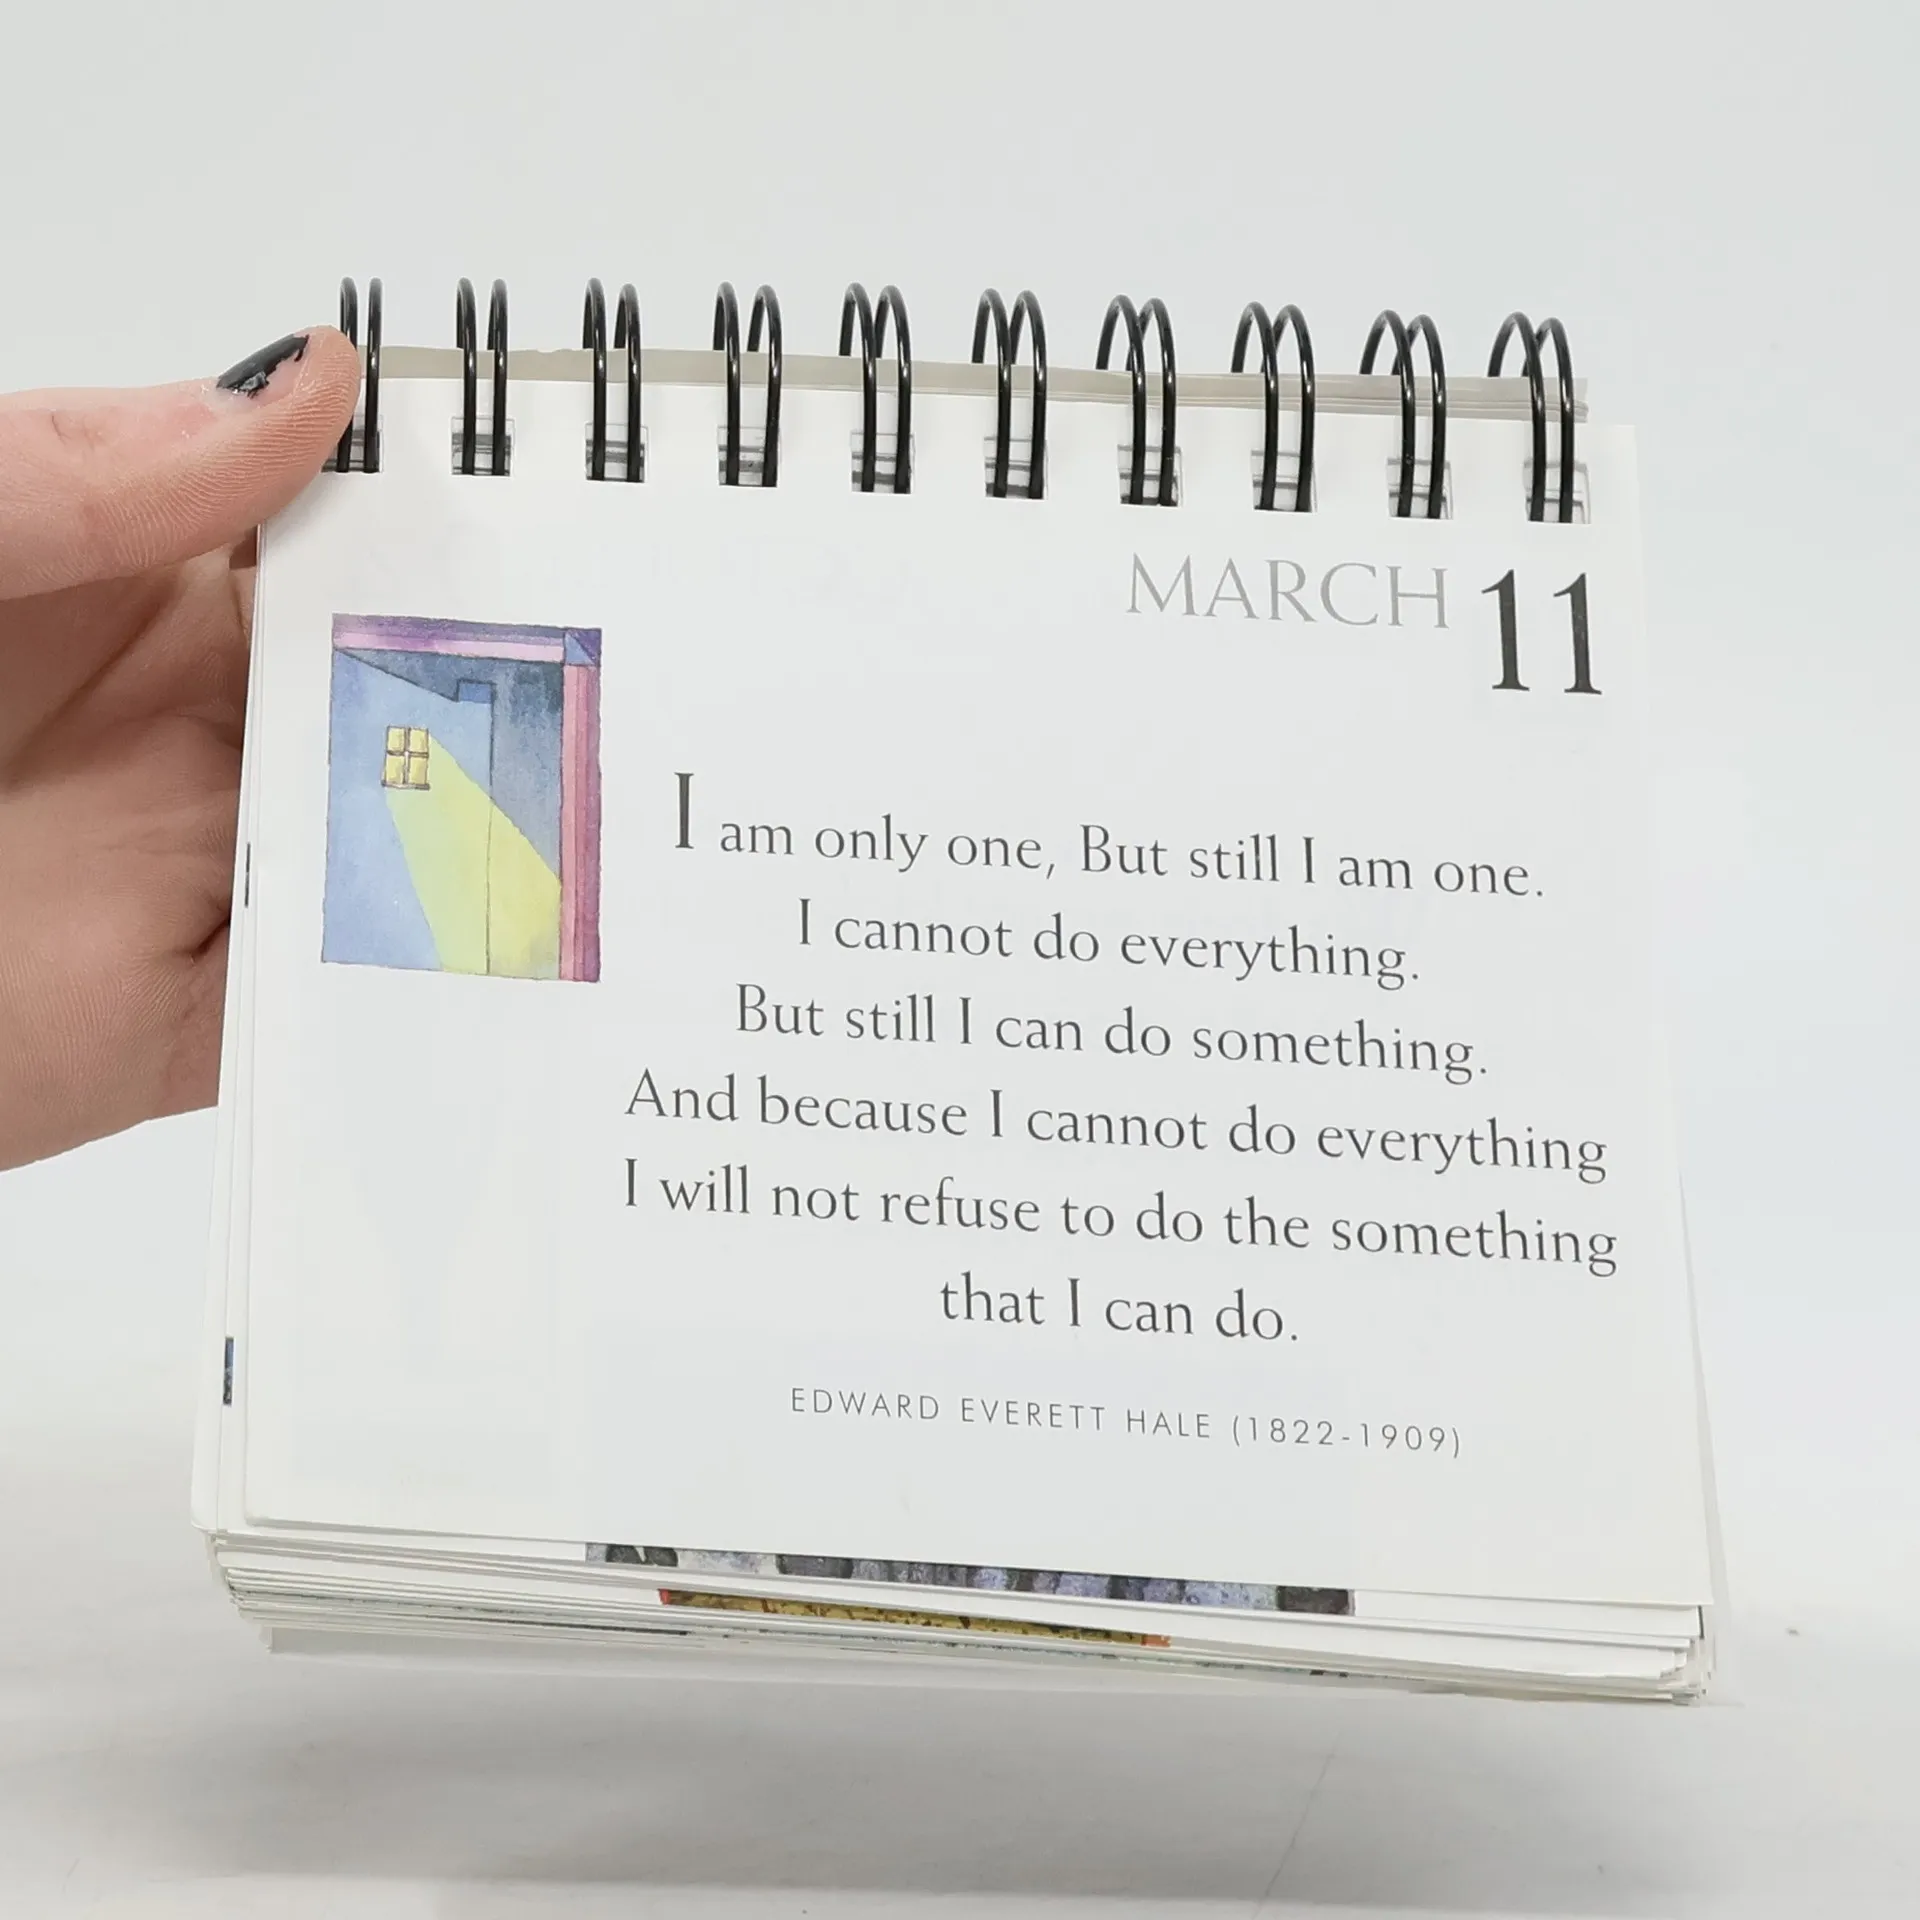 MARCH 11
I am only one, But still I am one.
I cannot do everything.
But still I can do something.
And because I cannot do everything
I will not refuse to do the something
that I can do.
EDWARD EVERETT HALE (1822-1909)